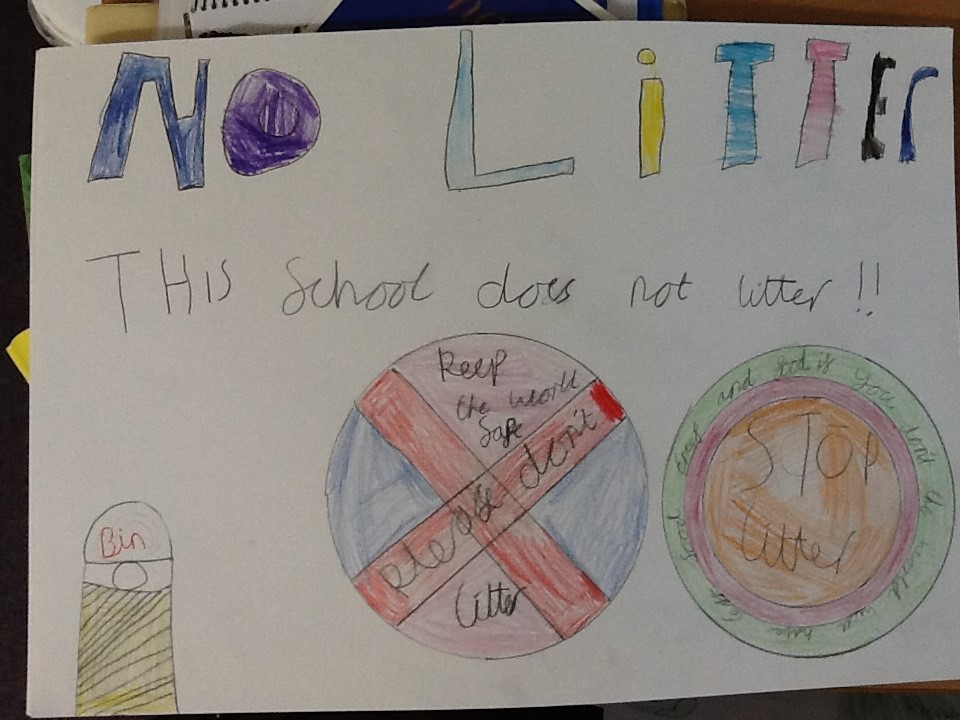 NO LiTTEr
THis School does not litter !!
Keep
the world
safe
please don't
litter
STOP
litter
and if you don't the world will have
Bin